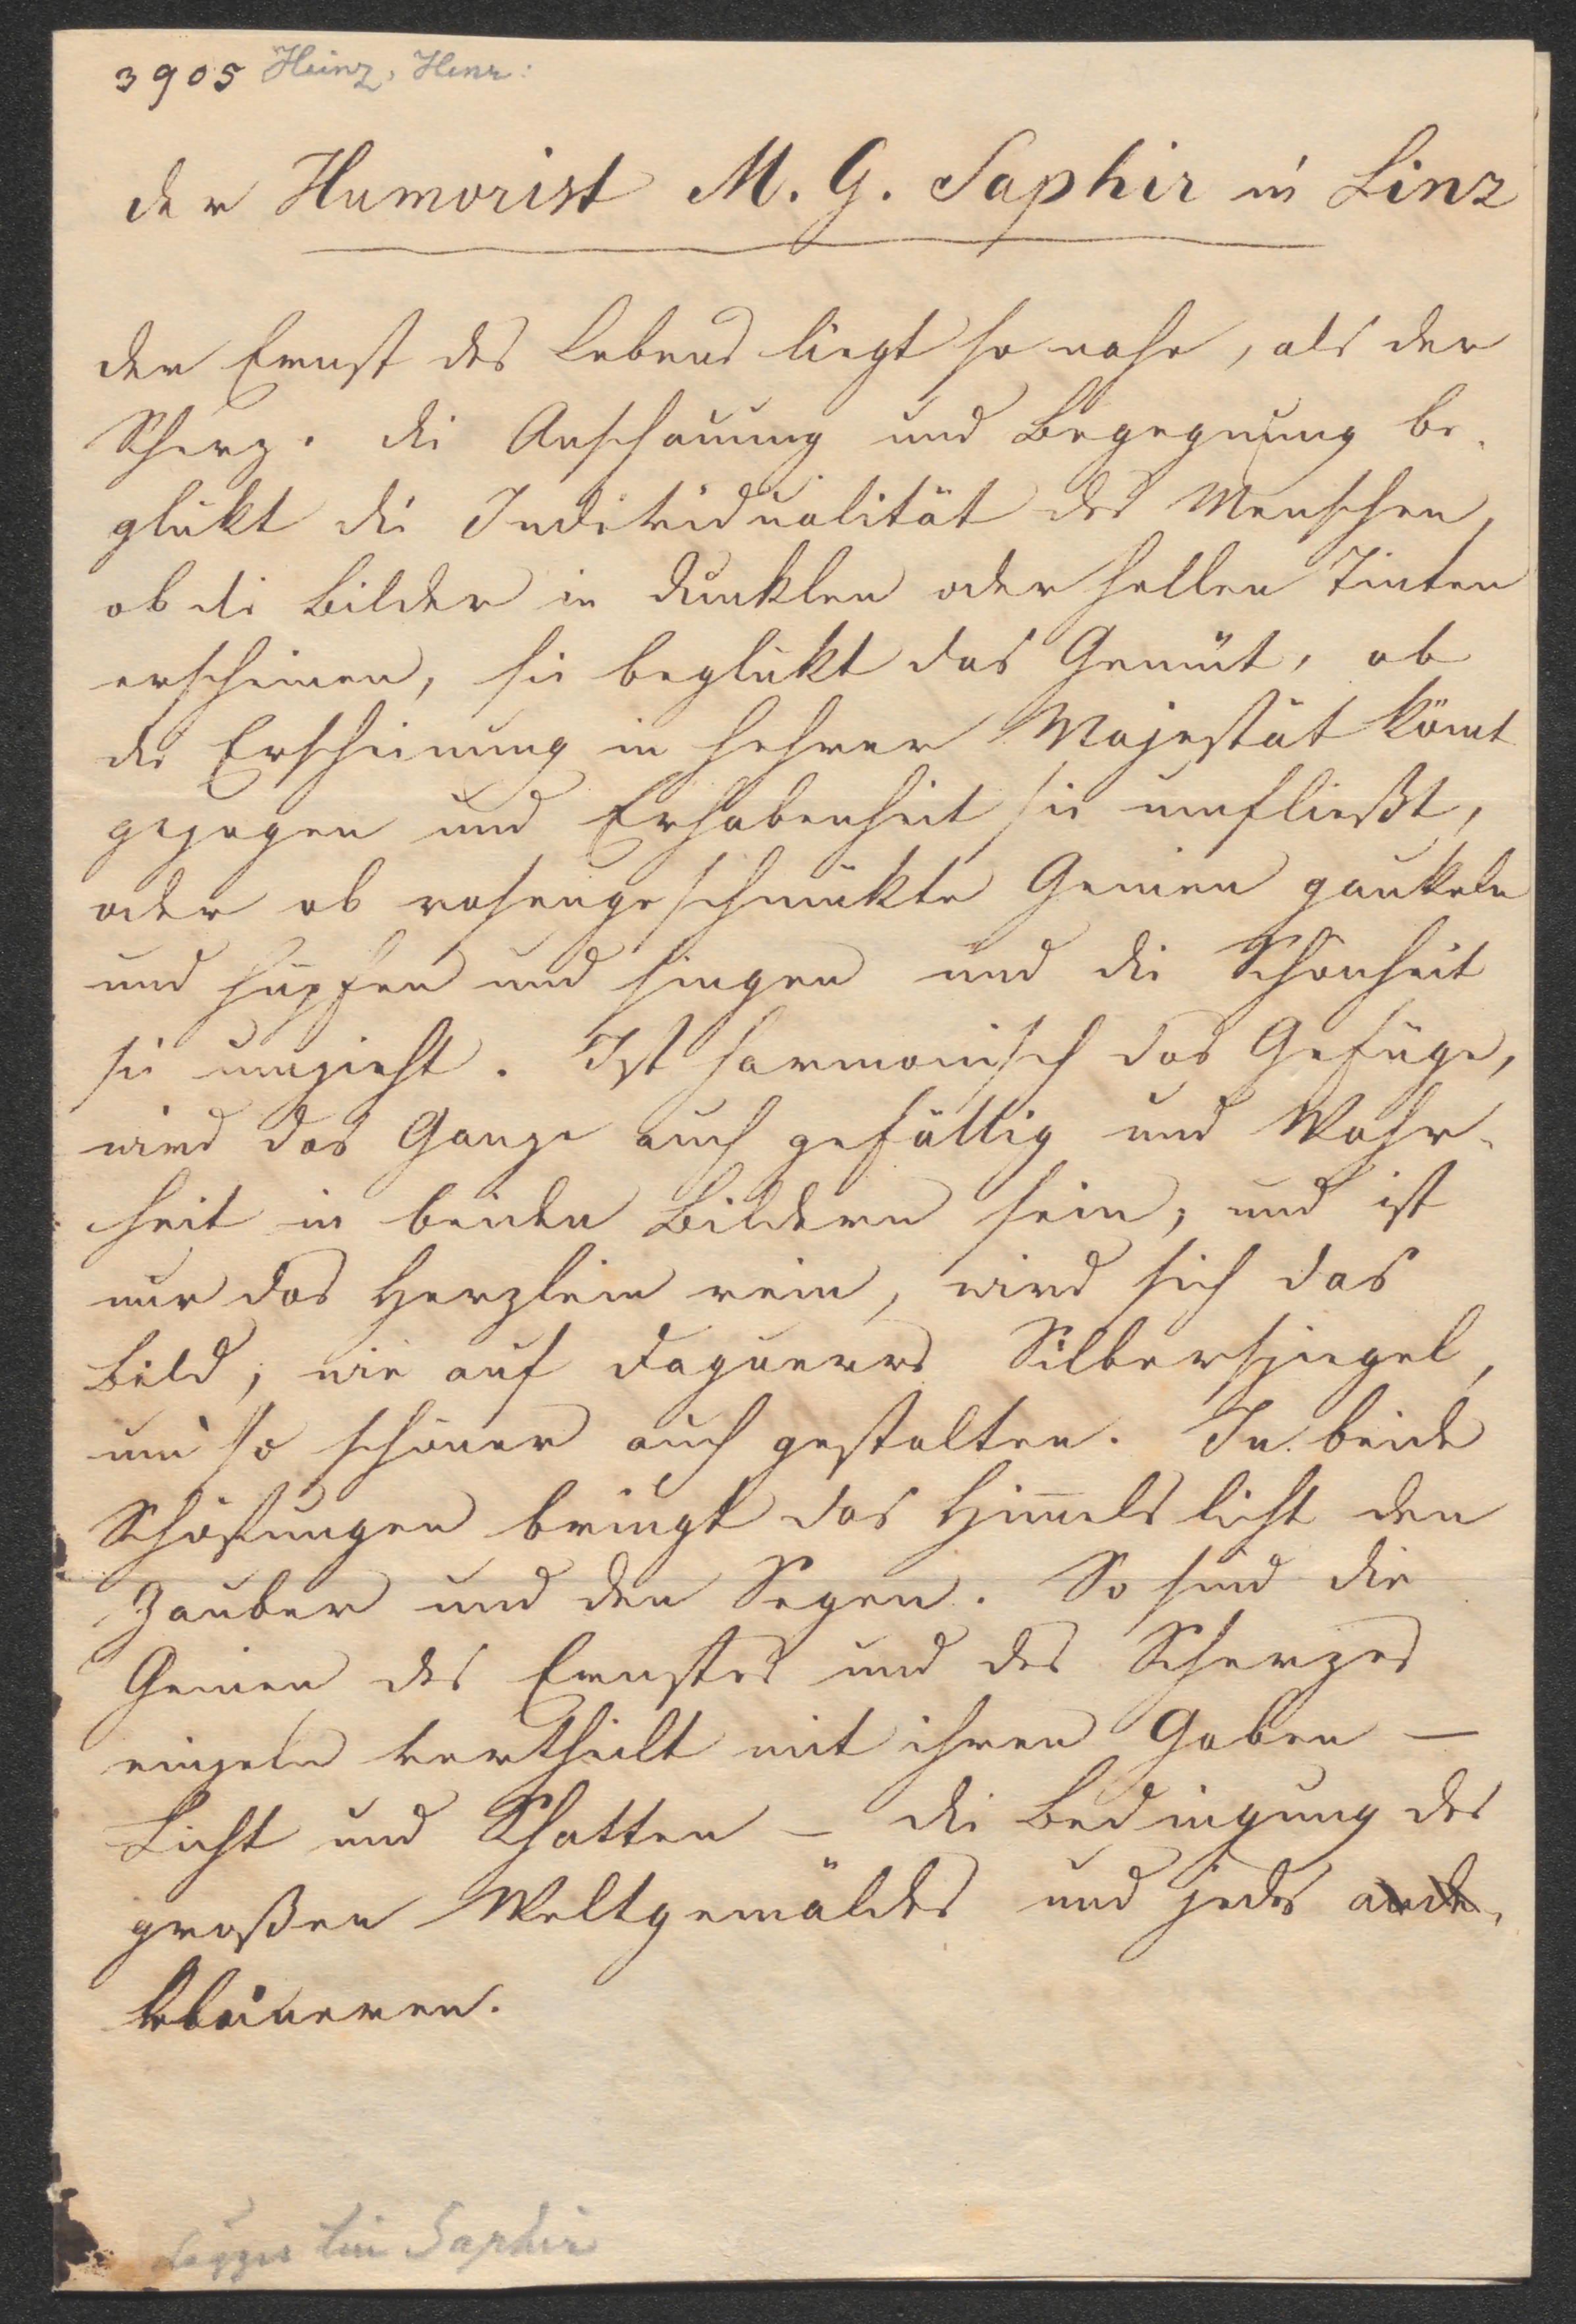 3905 Heinz, Henr:
der Humorist M. G. Saphir in Linz
Der Ernst des Lebens liegt so nahe, als der
Scherz. Die Anschauung und Begegnung be-
glükt die Individualität des Menschen,
ob die Bilder in dunklen oder hellen Tinten
erscheinen, sie beglükt das Gemüt, ob
die Erscheinung in hehrer Majestät kömt
gezogen und Erhabenheit sie umfließt,
oder ob rosengeschmükte Genien gaukeln
und hüpfen und singen und die Schönheit
sie umzieht. Ist harmonisch das Gefüge,
wird das Ganze auch gefällig und Wahr-
heit in beiden Bildern sein; und ist
nur das Herzlein rein, wird sich das
Bild, wie auf Daguerrs Silberspiegel,
um so schöner auch gestalten. In beide
Schöpfungen bringt das Himmelslicht den
Zauber und den Segen. So sind die
Genien des Ernstes und des Scherzes
einzeln vertheilt mit ihren Gaben —
Licht und Schatten — die Bedingung des
großen Weltgemäldes und jedes
kleineren.
Saphir